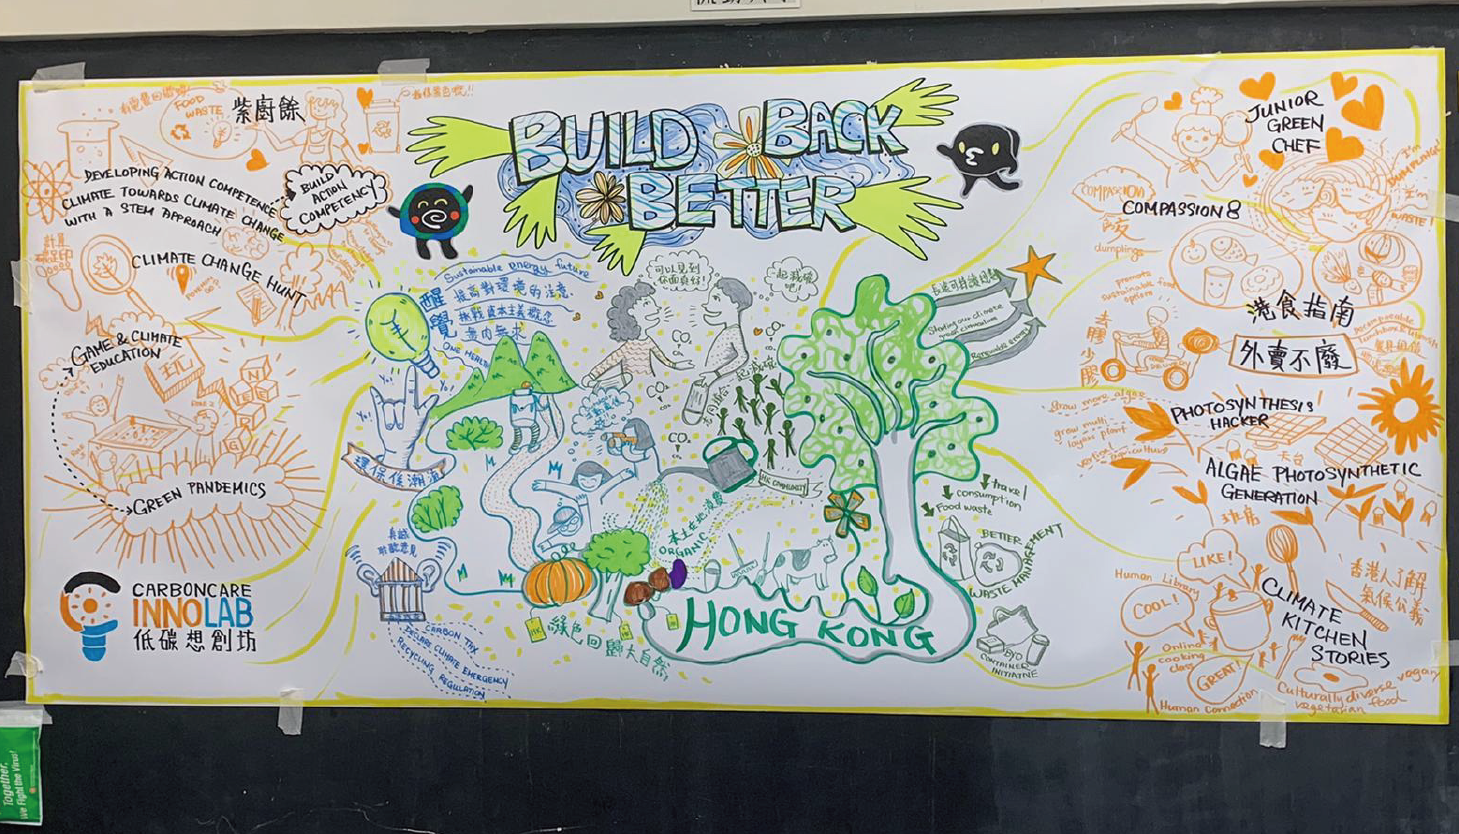 BUILD BACK
BETTER
FOOD
WASTE
紫廚餘
DEVELOPING ACTION COMPETENCE
CLIMATE TOWARDS CLIMATE CHANGE
WITH A STEM APPROACH
BUILD
ACTION
COMPETENCY
CLIMATE CHANGE HUNT
GAME & CLIMATE
EDUCATION
GREEN PANDEMICS
CARBONCARE
INNOLAB
低碳想創坊
Sustainable energy future
醒覺
提高對環境的注意
挑戰資本主義概念
One Health
Yo!
Yo!
Yo!
環保係潮流
CARBON TAX
DECLARE CLIMATE EMERGENCY
RECYCLING REGULATION
可以見到
你面真好!
一起減碳
吧!
CO₂
CO₂
CO₂
CO₂
HK COMMUNITY
本土在地消費
ORGANIC
HONG KONG
綠色回歸大自然
HK
Starting our climate
Renewable energy
travel
consumption
Food waste
BETTER
WASTE MANAGEMENT
BYO
CONTAINER
INITIATIVE
JUNIOR
GREEN
CHEF
COMPASSION
COMPASSION 8
dumplings
Promote
sustainable food
options
港食指南
外賣不廢
走膠少膠
grow more algae
PHOTOSYNTHESIS
HACKER
ALGAE PHOTOSYNTHETIC
GENERATION
LIKE!
Human Library
COOL!
Online
cooking
class
GREAT!
Human connection
CLIMATE
KITCHEN
STORIES
香港人了解
氣候公義
Culturally diverse vegan
vegetarian food
Together,
We Fight the Virus!